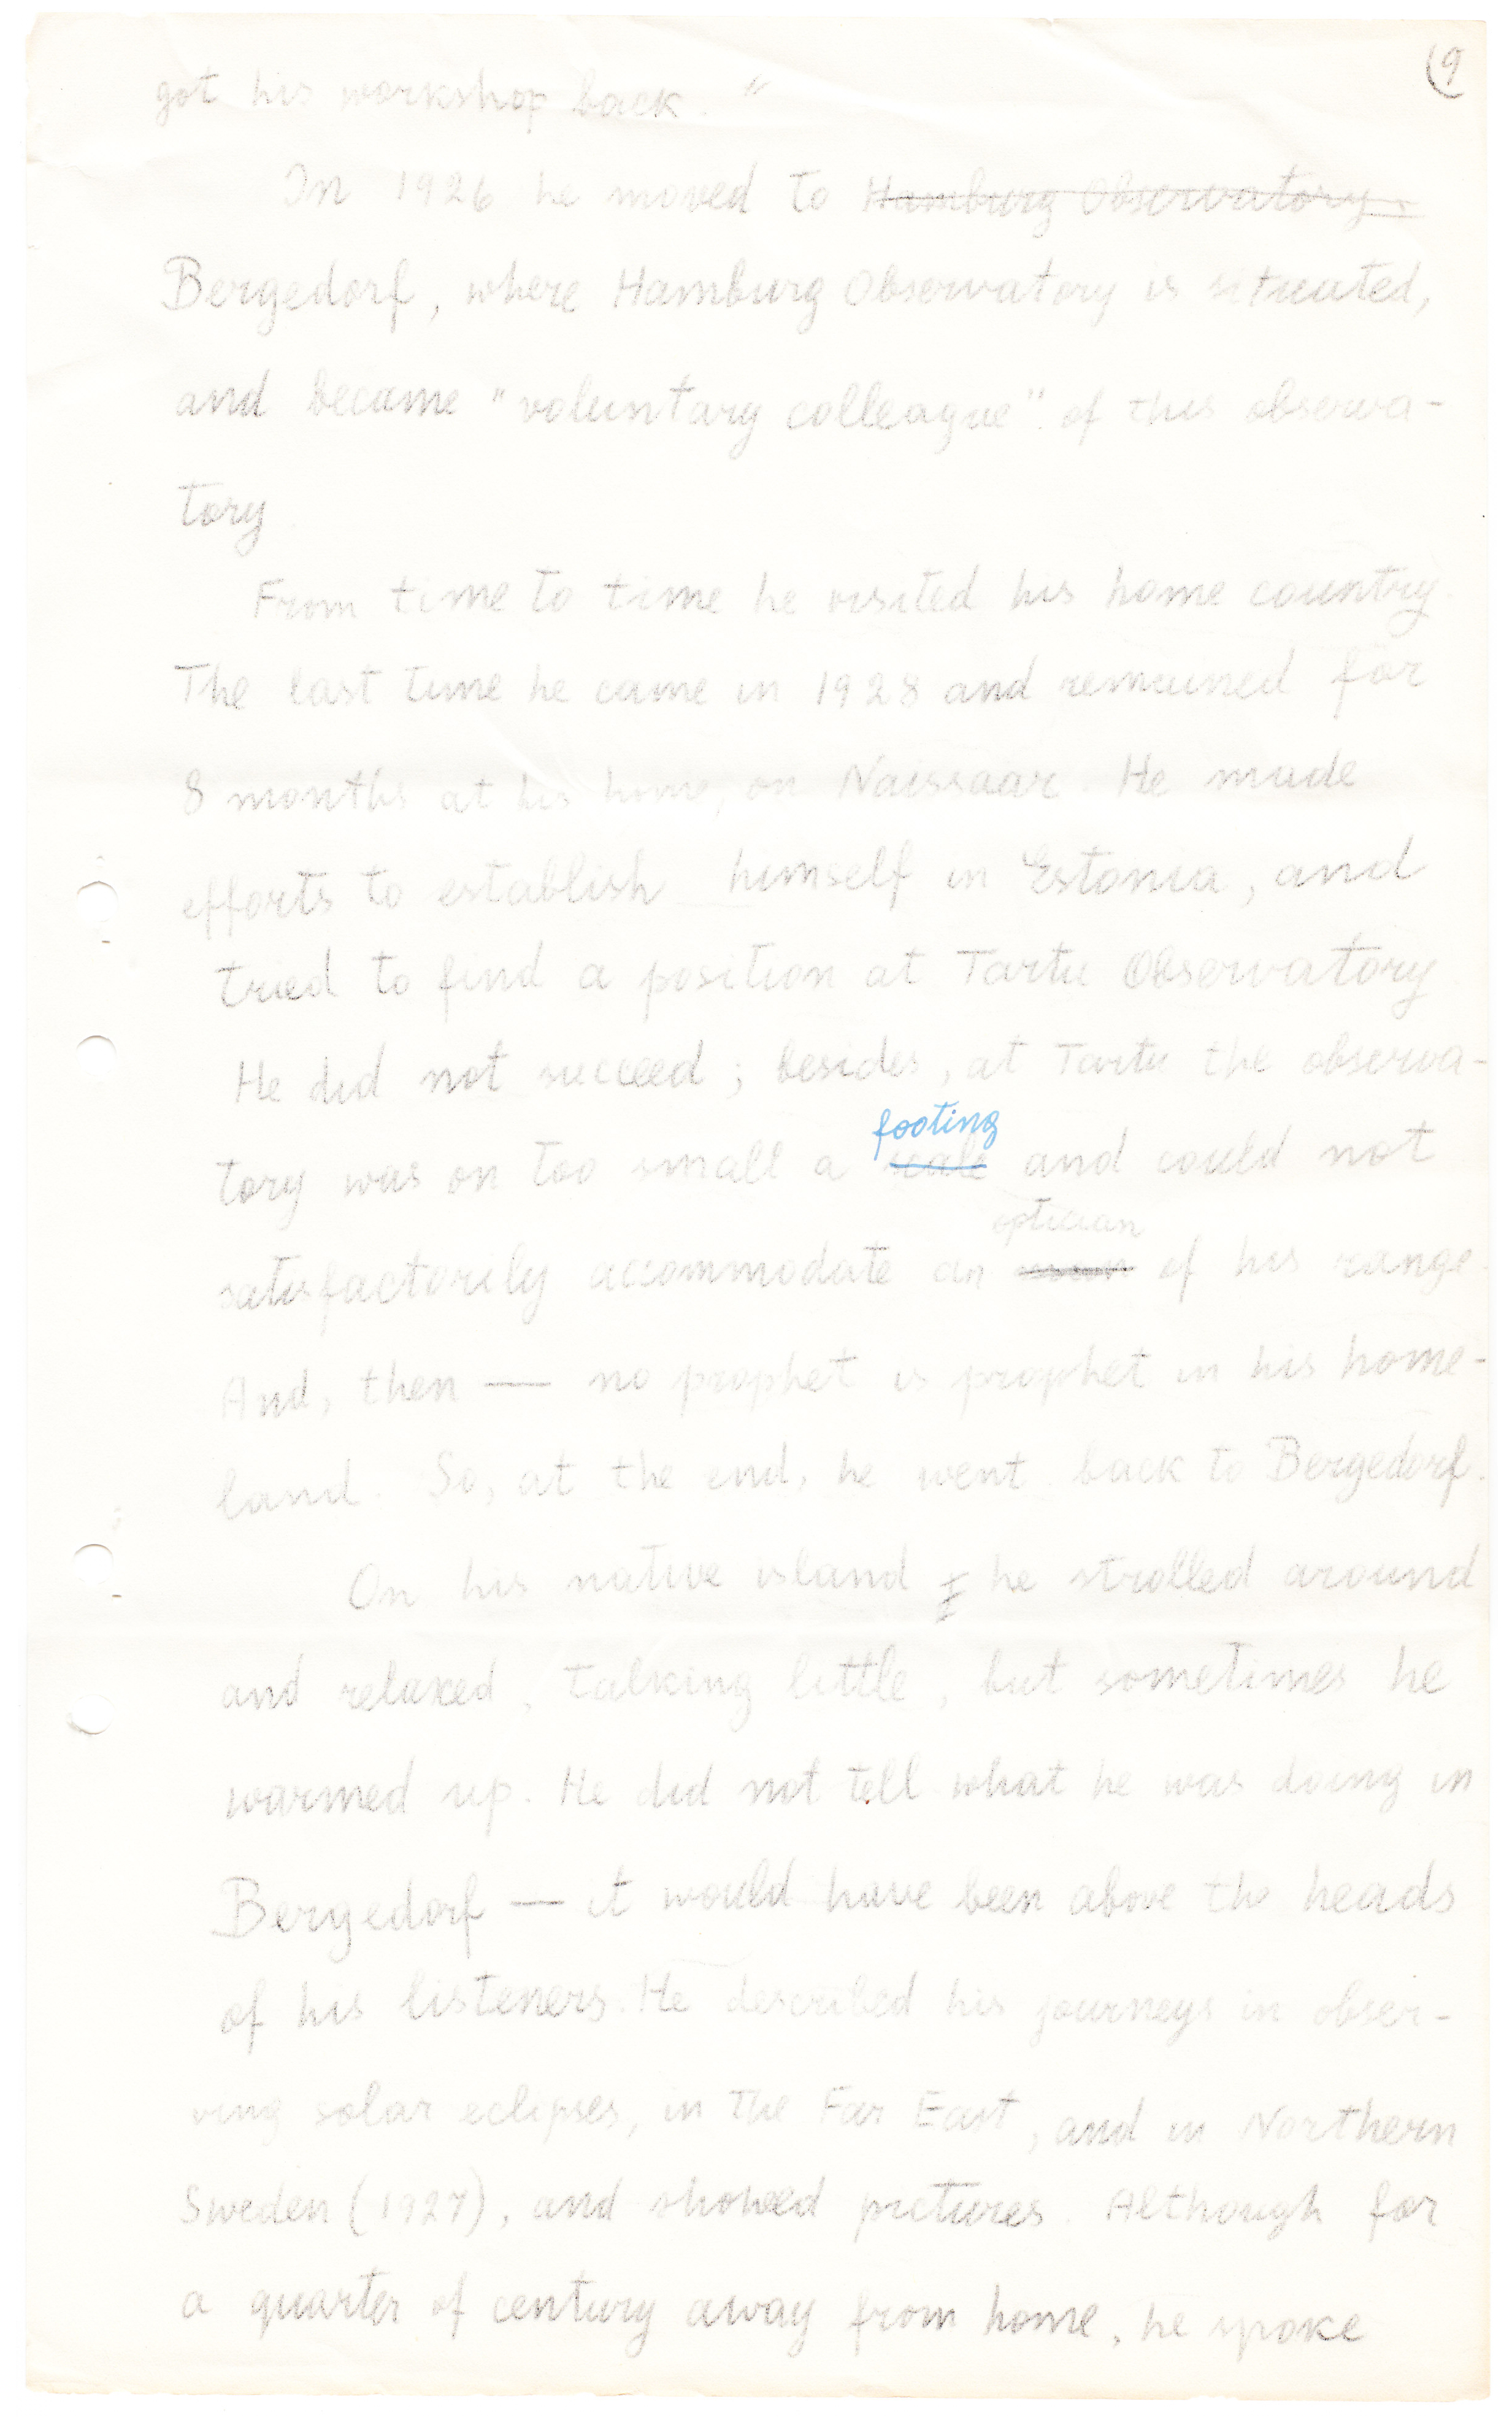 9
got his workshop back."
In 1926 he moved to Hamburg Observatory.
Bergedorf, where Hamburg Observatory is situated,
and became "voluntary colleague". of this observa-
tory
From time to time he visited his home country.
The last time he came in 1928 and remained for
8 months at his home, on Naissaar. He made
efforts to establish himself in Estonia, and
tried to find a position at Tartu Observatory.
He did not succeed; besides, at Tartu the observa-
footing
tory was on too small a scale and could not
optician
satisfactorily accommodate an of his range
And, then — no prophet is prophet in his home-
land. So, at the end, he went back to Bergedorf.
On his native island he strolled around
and relaxed, talking little, but sometimes he
warmed up. He did not tell what he was doing in
Bergedorf — it would have been above the heads
of his listeners. He described his journeys in obser-
ving solar eclipses, in the Far East, and in Northern
Sweden (1927), and showed pictures. Although for
a quarter of century away from home, he spoke